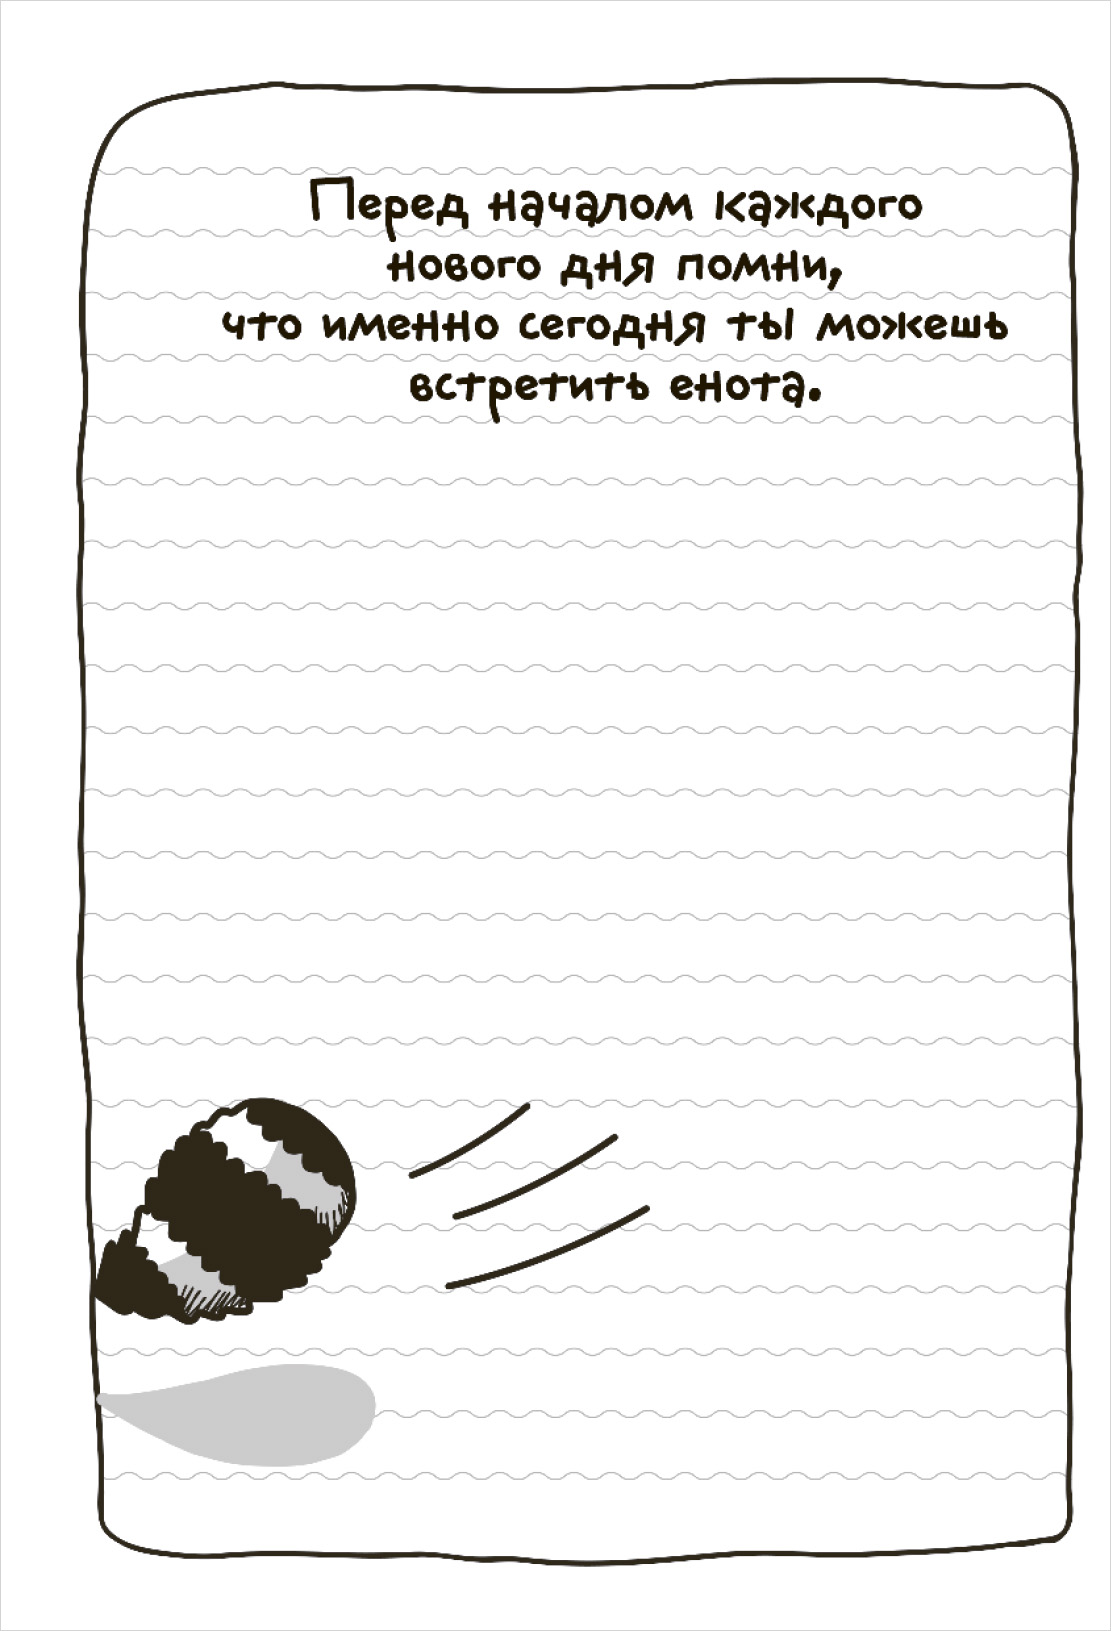 Перед началом каждого
нового дня помни,
что именно сегодня ты можешь
встретить енота.